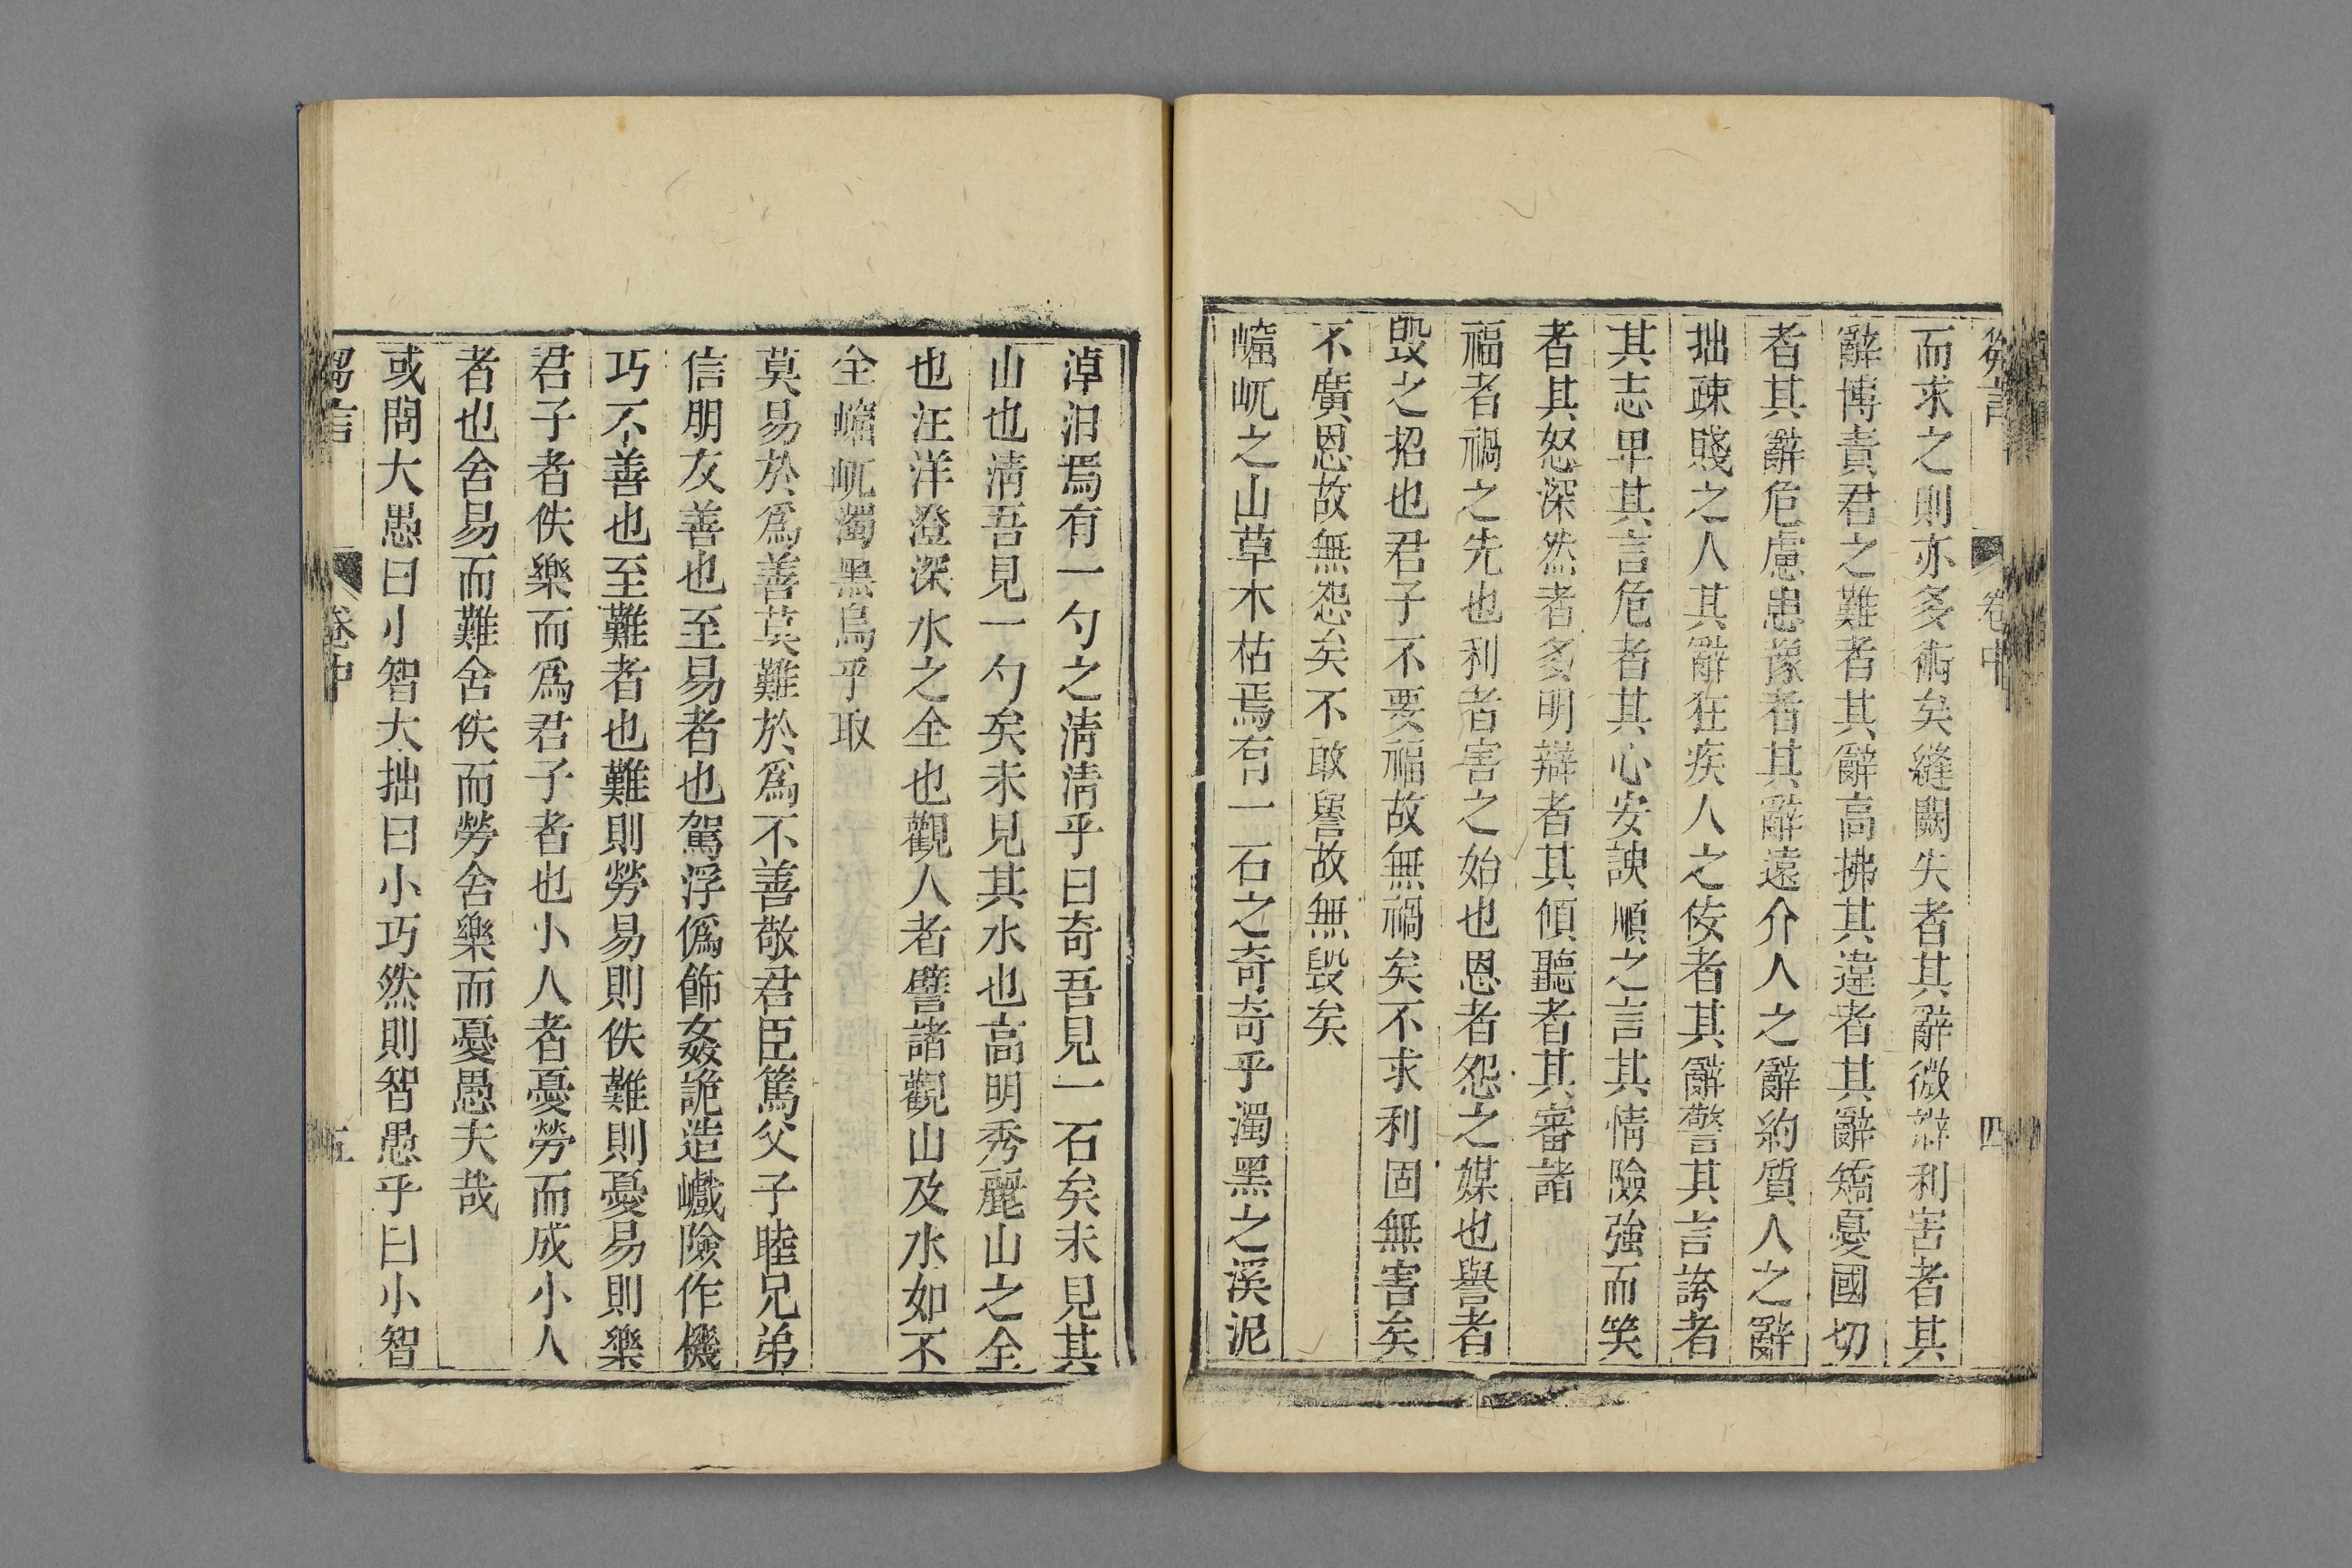 芻言 卷中 四
而求之則亦多術矣縫闕失者其辭微辯利害者其
辭博責君之難者其辭高拂其違者其辭矯憂國切
者其辭危慮患豫者其辭遠介人之辭約質人之辭
拙疎賤之人其辭狂疾人之佞者其辭警其言誇者
其志卑其言危者其心安諛順之言其情險強而笑
者其怒深然者多明辯者其傾聽者其審諸
福者禍之先也利者害之始也恩者怨之媒也譽者
毀之招也君子不要福故無禍矣不求利固無害矣
不廣恩故無怨矣不敢譽故無毀矣
巄屼之山草木枯焉有一石之奇奇乎濁黑之溪泥
淖汩焉有一勺之清清乎曰奇吾見一石矣未見其
山也清吾見一勺矣未見其水也高明秀麗山之全
也汪洋澄深水之全也觀人者譬諸觀山及水如不
全巄屼濁黑烏乎取
莫易於爲善莫難於爲不善敬君臣篤父子睦兄弟
信朋友善也至易者也駕浮僞飾姦詭造巇險作機
巧不善也至難者也難則勞易則佚難則憂易則樂
君子者佚樂而爲君子者也小人者憂勞而成小人
者也舍易而難舍佚而勞舍樂而憂愚夫哉
或問大愚曰小智大拙曰小巧然則智愚乎曰小智
芻言 卷中 五